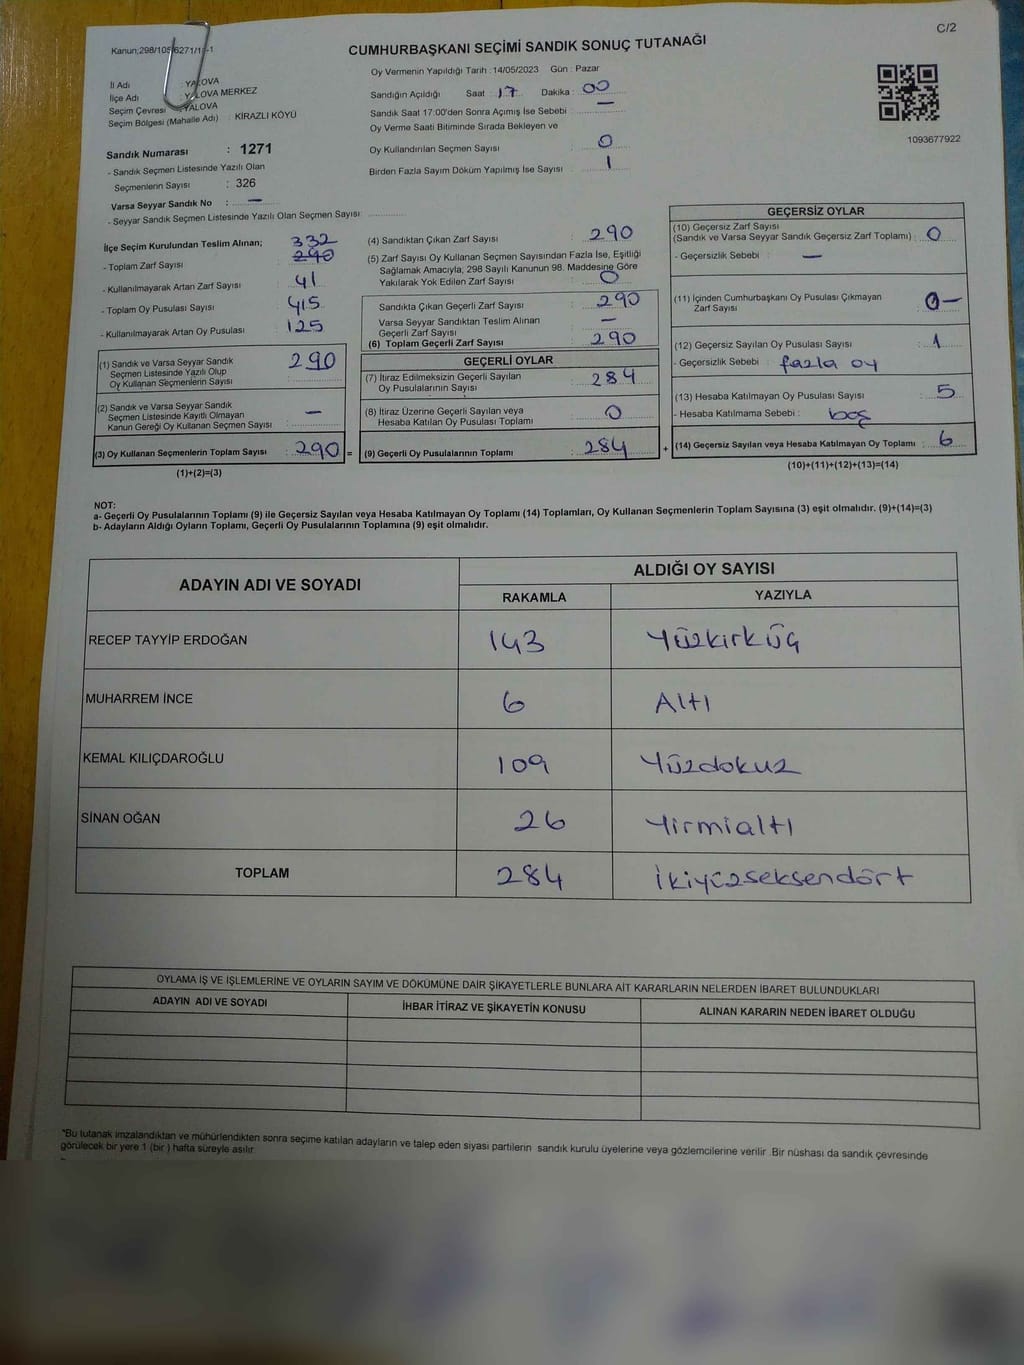 C/2
Kanun;298/105 6271/1 -1
CUMHURBAŞKANI SEÇİMİ SANDIK SONUÇ TUTANAĞI
İl Adı : YALOVA
İlçe Adı : YALOVA MERKEZ
Seçim Çevresi : YALOVA
Seçim Bölgesi (Mahalle Adı) : KİRAZLI KÖYÜ
Sandık Numarası : 1271
- Sandık Seçmen Listesinde Yazılı Olan
Seçmenlerin Sayısı : 326
Varsa Seyyar Sandık No : —
- Seyyar Sandık Seçmen Listesinde Yazılı Olan Seçmen Sayısı
Oy Vermenin Yapıldığı Tarih : 14/05/2023 Gün : Pazar
Sandığın Açıldığı Saat : 17 Dakika : 00
Sandık Saat 17:00'den Sonra Açımış İse Sebebi —
Oy Verme Saati Bitiminde Sırada Bekleyen ve
Oy Kullandırılan Seçmen Sayısı : 0
Birden Fazla Sayım Döküm Yapılmış İse Sayısı : 1
1093677922
İlçe Seçim Kurulundan Teslim Alınan; 332
- Toplam Zarf Sayısı : 290
- Kullanılmayarak Artan Zarf Sayısı : 41
- Toplam Oy Pusulası Sayısı : 415
- Kullanılmayarak Artan Oy Pusulası : 125
(1) Sandık ve Varsa Seyyar Sandık
Seçmen Listesinde Yazılı Olup
Oy Kullanan Seçmenlerin Sayısı : 290
(2) Sandık ve Varsa Seyyar Sandık
Seçmen Listesinde Kayıtlı Olmayan
Kanun Gereği Oy Kullanan Seçmen Sayısı : —
(3) Oy Kullanan Seçmenlerin Toplam Sayısı : 290 =
(1)+(2)=(3)
(4) Sandıktan Çıkan Zarf Sayısı : 290
(5) Zarf Sayısı Oy Kullanan Seçmen Sayısından Fazla İse, Eşitliği
Sağlamak Amacıyla, 298 Sayılı Kanunun 98. Maddesine Göre
Yakılarak Yok Edilen Zarf Sayısı : 0
Sandıkta Çıkan Geçerli Zarf Sayısı : 290
Varsa Seyyar Sandıktan Teslim Alınan
Geçerli Zarf Sayısı : —
(6) Toplam Geçerli Zarf Sayısı : 290
GEÇERLİ OYLAR
(7) İtiraz Edilmeksizin Geçerli Sayılan
Oy Pusulalarının Sayısı : 284
(8) İtiraz Üzerine Geçerli Sayılan veya
Hesaba Katılan Oy Pusulası Toplamı : 0
(9) Geçerli Oy Pusulalarının Toplamı : 284 +
GEÇERSİZ OYLAR
(10) Geçersiz Zarf Sayısı
(Sandık ve Varsa Seyyar Sandık Geçersiz Zarf Toplamı) : 0
- Geçersizlik Sebebi : —
(11) İçinden Cumhurbaşkanı Oy Pusulası Çıkmayan
Zarf Sayısı : 0 —
(12) Geçersiz Sayılan Oy Pusulası Sayısı : 1
- Geçersizlik Sebebi : fazla oy
(13) Hesaba Katılmayan Oy Pusulası Sayısı : 5
- Hesaba Katılmama Sebebi : boş
(14) Geçersiz Sayılan veya Hesaba Katılmayan Oy Toplamı : 6
(10)+(11)+(12)+(13)=(14)
NOT:
a- Geçerli Oy Pusulalarının Toplamı (9) ile Geçersiz Sayılan veya Hesaba Katılmayan Oy Toplamı (14) Toplamları, Oy Kullanan Seçmenlerin Toplam Sayısına (3) eşit olmalıdır. (9)+(14)=(3)
b- Adayların Aldığı Oyların Toplamı, Geçerli Oy Pusulalarının Toplamına (9) eşit olmalıdır.
ADAYIN ADI VE SOYADI ALDIĞI OY SAYISI
RAKAMLA YAZIYLA
RECEP TAYYİP ERDOĞAN 143 Yüzkırküç
MUHARREM İNCE 6 Altı
KEMAL KILIÇDAROĞLU 109 Yüzdokuz
SİNAN OĞAN 26 Yirmialtı
TOPLAM 284 İkiyüzseksendört
OYLAMA İŞ VE İŞLEMLERİNE VE OYLARIN SAYIM VE DÖKÜMÜNE DAİR ŞİKAYETLERLE BUNLARA AİT KARARLARIN NELERDEN İBARET BULUNDUKLARI
ADAYIN ADI VE SOYADI İHBAR İTİRAZ VE ŞİKAYETİN KONUSU ALINAN KARARIN NEDEN İBARET OLDUĞU
*Bu tutanak imzalandıktan ve mühürlendikten sonra seçime katılan adayların ve talep eden siyasi partilerin sandık kurulu üyelerine veya gözlemcilerine verilir .Bir nüshası da sandık çevresinde
görülecek bir yere 1 (bir ) hafta süreyle asılır